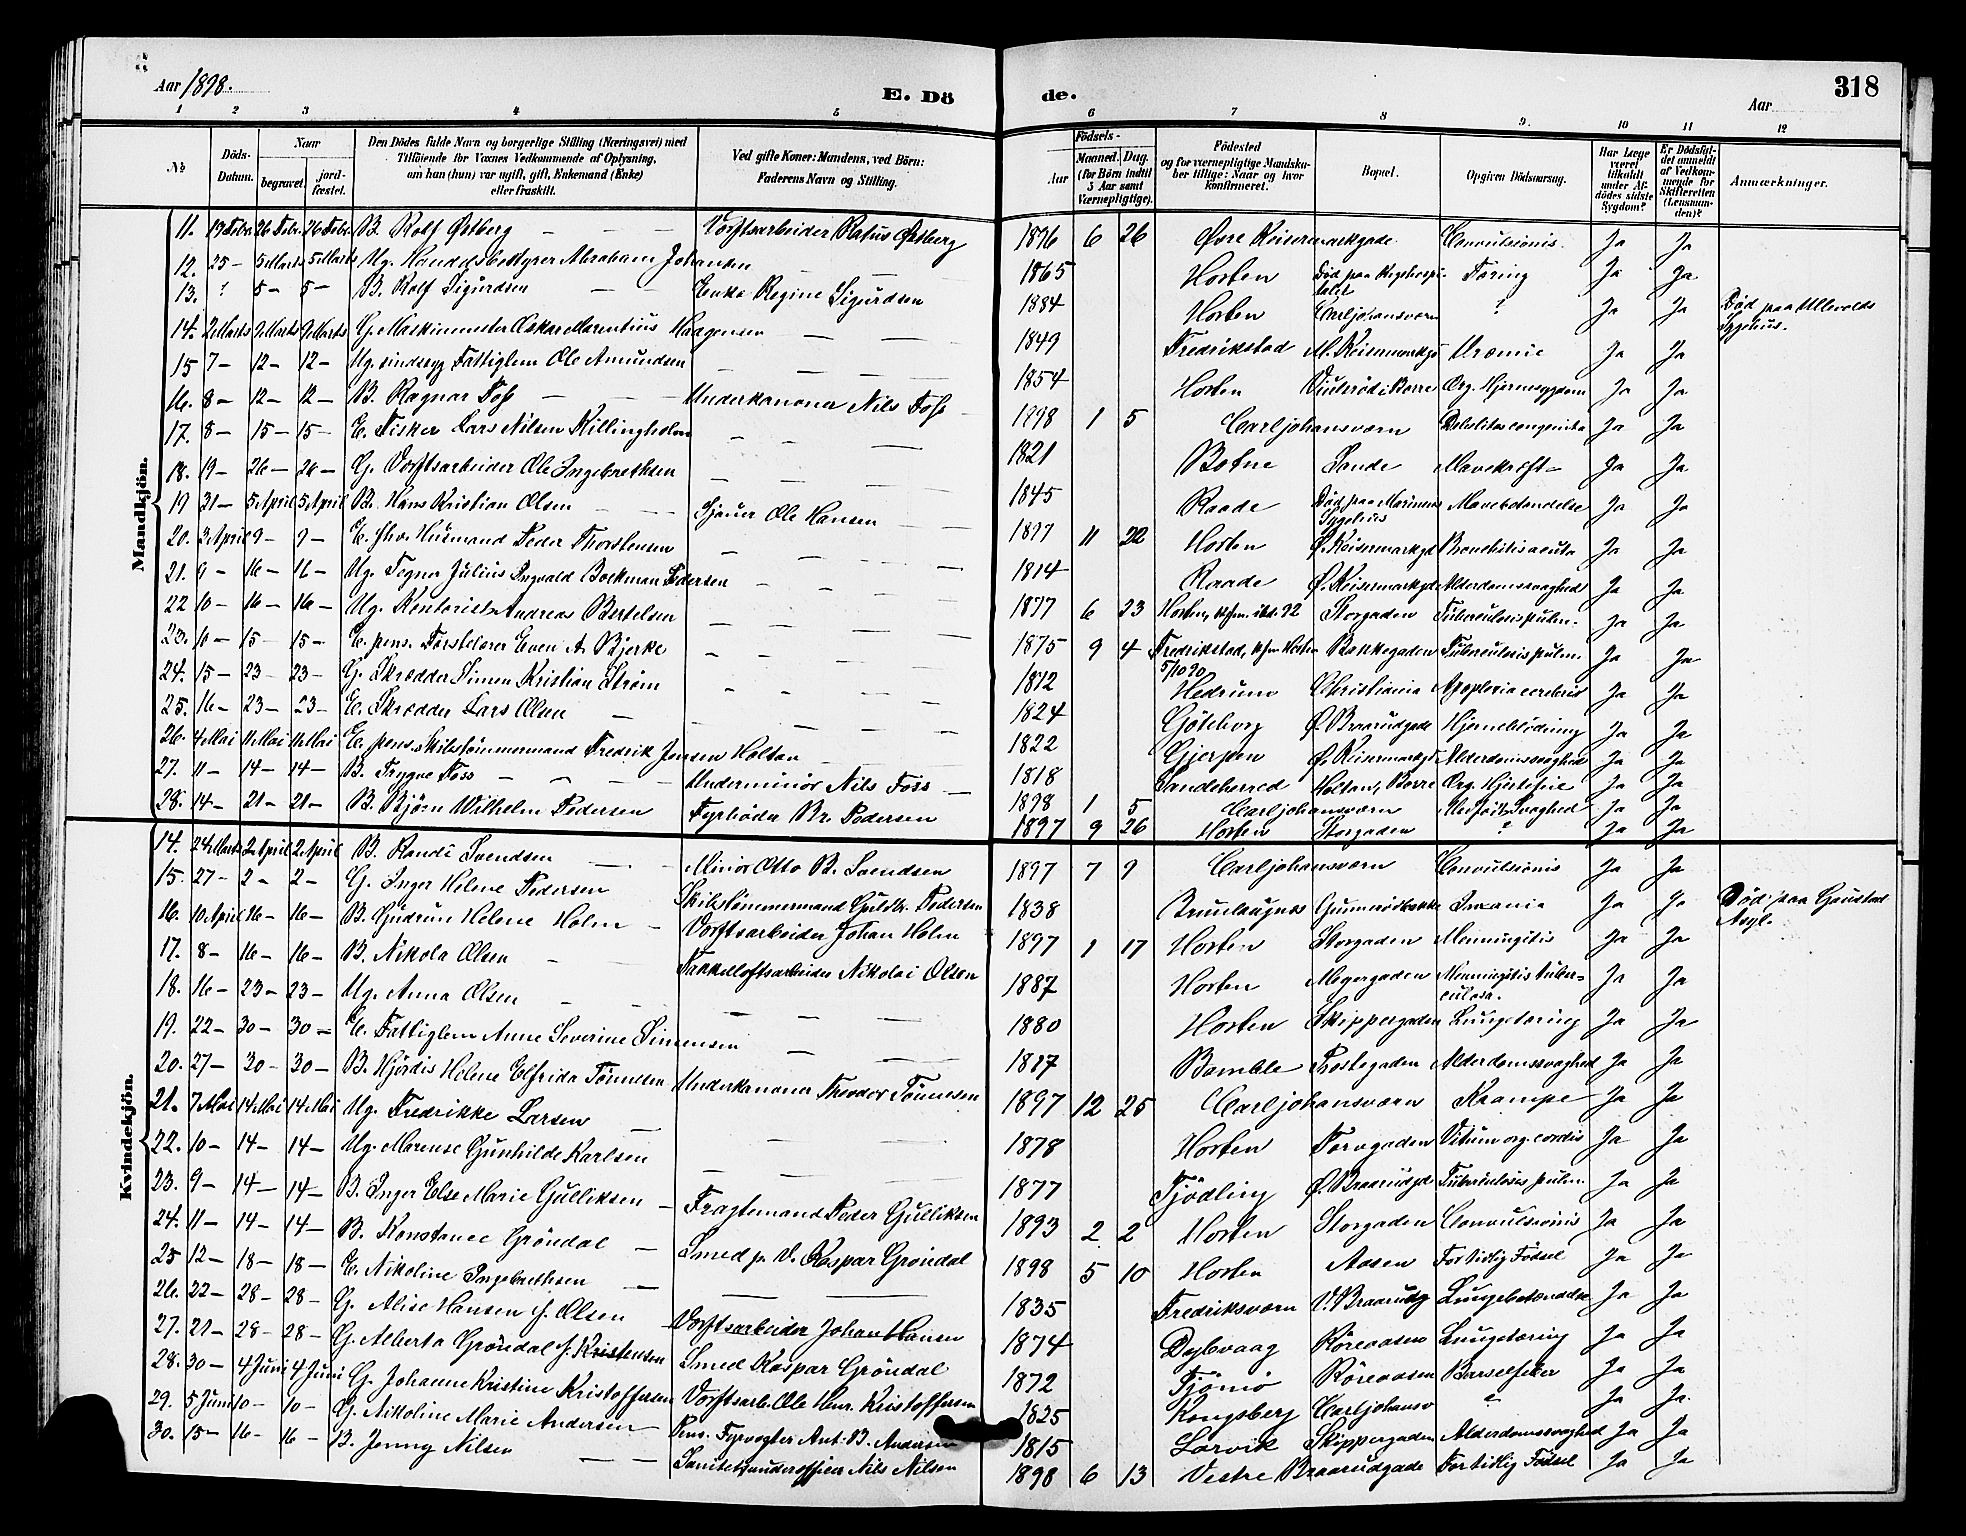 Aar 1898.
E. Dö
de.
Aar
318
1 2 3 4 5 6 7 8 9. 10 11 12
No
Döds-Datum.
Naar
begravet.
jord-fæstet.
Den Dödes fulde Navn og borgerlige Stilling (Næringsvei) med Tilföiende for Voxnes Vedkommende af Oplysning, om han (hun) var ugift, gift, Enkemand (Enke) eller fraskilt.
Ved gifte Koner: Mandens, ved Börn: Faderens Navn og Stilling.
Födsels-
Aar
Maaned. Dag. (for Börn indtil 5 Aar samt Værnepligtige).
Födested og for værnepligtige Mandskaber tillige: Naar og hvor konfirmeret.
Bopæl.
Opgiven Dödsaarsag.
Har Læge været tilkaldt under Afdödes sidste Sygdom?
Er Dödsfaldet anmeldt af Vedkommende for Skifteretten (Lensmanden)?
Anmærkninger.
Mandkjön.
11. 19 Febr. 26 Febr. 26 Febr. B. Rolf Østberg — Værftsarbeider Østberg 1896 6 26 Øvre Keisermarkgade Convulsionis Ja Ja
12. 25 – 5 Marts 5 Marts Ug. Handelsbestyrer Abraham Johansen — 1865 Horten Død paa Rigshospitalet Tæring Ja Ja
13. ? 5 – 5 – B. Rolf Sigurdsen — Enke Regine Sigurdsen 1884 Horten Carljohansværn ? Ja Ja Død paa Ullevolds Sygehus.
14. 2 Marts 9 Marts 9 Marts G. Maskinmester Oskar Marentius Haagensen — 1849 Fredrikstad Keisermarkg. Uræmie Ja Ja
15 7 – 12 – 12 – Ug. sindssyg Fattiglem Ole Amundsen — 1854 Horten i Borre Org. Hjernesygdom Ja Ja
16. 8 – 12 – 12 – B. Ragnar Foss — Underkanoner Nils Foss 1898 1 5 Carljohansværn Debilitas congenita Ja Ja
17. 8 – 15 – 15 – E. Fisker Lars Nilsen Killingholmen — 1821 Botne Sande Mavekræft – Ja Ja
18. 19 – 26 – 26 – G. Værftsarbeider Ole Ingebrethsen — 1845 Raade Død paa Marinens Sygehus Mavebetændelse Ja Ja
19 31 – 5 April 5 April B. Hans Kristian Olsen — Sjauer Ole Hansen 1897 11 22 Horten Ø. Keisermarkgd Bronchitis acuta Ja Ja
20. 3 April 9 – 9 – E. fhv. Husmand Peder Thorstensen — 1814 Raade Ø. Keisermarkgd Alderdomssvaghed Ja Ja
21. 9 – 16 – 16 – Ug. Tegner Julius Ingvald Bockman Pedersen — 1877 6 23 Horten, Storgaden Tuberculosis pulm. Ja Ja
22 10 – 16 – 16 – Ug. Kontorist Andreas Bertelsen — 1875 9 4 Fredrikstad, kfm Horten 5/10 90 Bakkegaden Tuberculosis pulm. Ja Ja
23. 10 – 15 – 15 – E. pens. Førstelærer Even A. Bjerke — 1812 Hedrum Christiania Apoplexia cerebris Ja Ja
24. 15 – 23 – 23 – G. Skrædder Simen Kristian Strøm — 1824 Göteborg Ø. Braarudgade Hjerneblödning Ja Ja
25. 16 – 23 – 23 – E. Skrædder Lars Olsen — 1822 Gjerpen Ø. Keisermarkgd Alderdomssvaghed Ja Ja
26. 4 Mai 11 Mai 11 Mai E. pens. Skibstömmermand Fredrik Jensen Holtan — 1818 Sandeherred Holtan, Borre Org. Hjertefeil Ja Ja
27. 11 – 14 – 14 – B. Trygve Foss — Underminör Nils Foss — 1898 1 5 Carljohansværn Medfödt Svaghed Ja Ja
28. 14 – 21 – 21 – B. Björn Wilhelm Pedersen Fyrböder Br. Pedersen 1897 9 26 Horten Storgaden ? Ja Ja
Kvindekjön.
14. 24 Marts 2 April 2 April B. Randi Svendsen — Minör Otto B. Svendsen 1897 7 9 Carljohansværn Convulsionis Ja Ja
15. 27 – 2 – 2 – G. Inger Helene Pedersen Skibstömmermand Gulbr. Pedersen 1838 Brunlaugnes Gunnarödbakke Insania Ja Ja Død paa Gaustad Asyl.
16. 10 April 16 – 16 – B. Gudrun Helene Holm – Værftsarbeider Johan Holm 1897 1 17 Horten Storgaden Menningitis Ja Ja
17. 8 – 16 – 16 – B. Nikola Olsen — Takkelloftsarbeider Nikolai Olsen 1887 Horten Møgergaden Menningitis tuberculosa. Ja Ja
18. 16 – 23 – 23 – Ug. Anna Olsen — 1880 Horten Skippergaden Lungetæring Ja Ja
19. 22 – 30 – 30 – E. Fattiglem Anne Severine Simensen — 1817 Bamble Alderdomssvaghed Ja Ja
20. 27 – 30 – 30 – B. Hjördis Helene Elfrida Tönnesen Underkanoner Theodor Tönnesen 1897 12 25 Carljohansværn Krampe Ja Ja
21. 7 Mai 14 Mai 14 Mai Ug. Fredrikke Larsen — 1878 Horten Torvgaden Vitium org. cordis Ja Ja
22. 10 – 14 – 14 – Ug. Marense Gunhilde Karlsen — 1877 Tjödling Ø. Braarudgd Tuberculosis pulm. Ja Ja
23. 9 – 14 – 14 – B. Inger Else Marie Gulliksen – Fragtemand Peder Gulliksen 1893 2 2 Horten Storgaden Convulsionis Ja Ja
24. 11 – 14 – 14 – B. Konstance Gröndal — Smed p. V. Kaspar Gröndal 1898 5 10 Horten Aasen For tidlig Födsel Ja Ja
25 12 – 18 – 18 – E. Nikoline Ingebrethsen — 1835 Fredriksværn V. Braarudg Lungebetændelse Ja Ja
26. 22 – 28 – 28 – G. Alise Hansen f. Olsen Værftsarbeider Johan Hansen 1874 Dybvaag Röreaasen Lungetæring Ja Ja
27. 21 – 28 – 28 – G. Alberta Gröndal f. Kristensen Smed Kaspar Gröndal 1872 Tjömö Röreaasen Barselfeber Ja Ja
28. 30 – 4 Juni 4 Juni G. Johanne Kristine Kristoffersen Værftsarb. Ole Henr. Kristoffersen 1825 Kongsberg Carljohansv ? Ja Ja
29. 5 Juni 10 – 10 – G. Nikoline Marie Andersen — Pens. Fyrvogter Ant. B. Andersen 1815 Larvik Skippergaden Alderdomssvaghed Ja Ja
30. 15 – 16 – 16 – B. Jenny Nilsen — Sanitetsunderofficer Nils Nilsen 1898 6 13 Vestre Braarudgade For tidlig Födsel Ja Ja